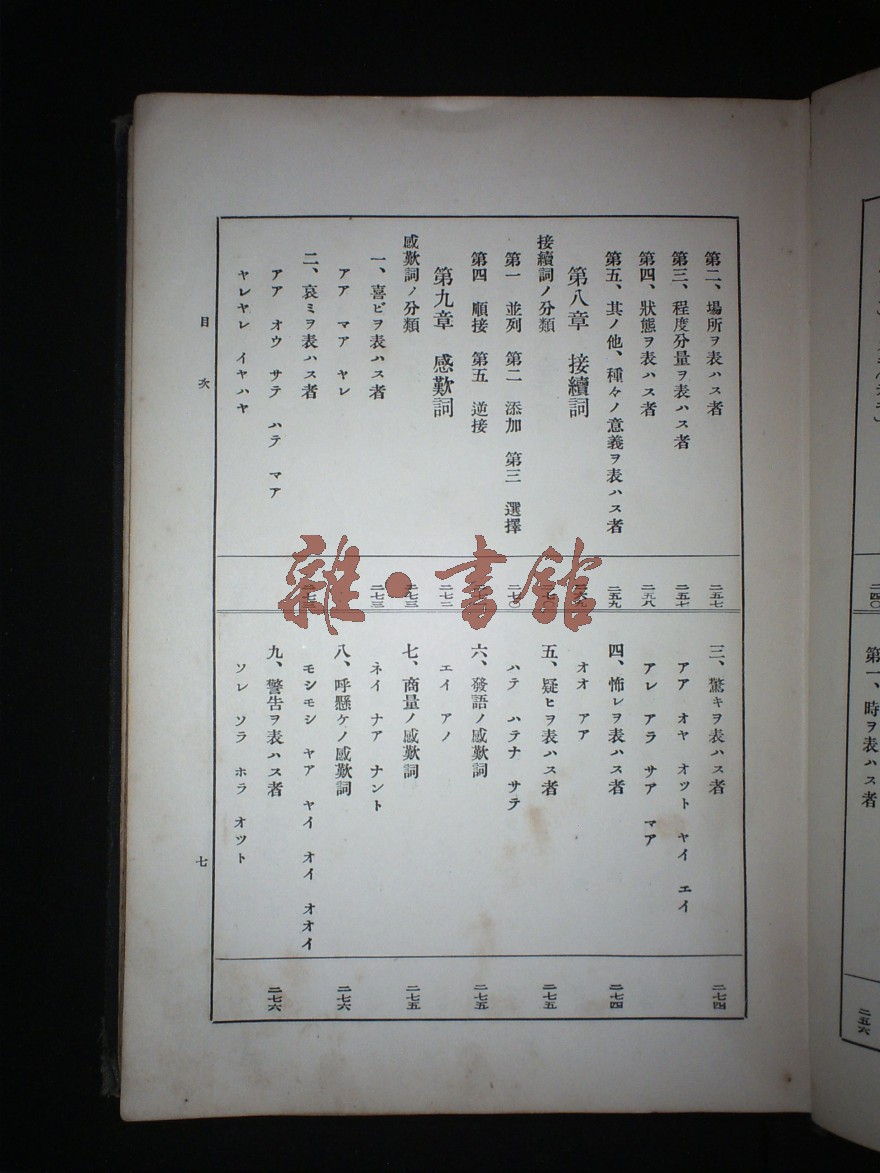 第二、場所ヲ表ハス者 二五七
第三、程度分量ヲ表ハス者 二五七
第四、狀態ヲ表ハス者 二五八
第五、其ノ他、種々ノ意義ヲ表ハス者 二五九
第八章 接續詞
接續詞ノ分類
第一 並列 第二 添加 第三 選擇 二七〇
第四 順接 第五 逆接
第九章 感歎詞 二七二
感歎詞ノ分類 二七三
一、喜ビヲ表ハス者 二七三
アア マア ヤレ
二、哀ミヲ表ハス者
アア オウ サテ ハテ マア
ヤレヤレ イヤハヤ
三、驚キヲ表ハス者 二七四
アア オヤ オツト ヤイ エイ
アレ アラ サア マア
四、怖レヲ表ハス者 二七四
オオ アア
五、疑ヒヲ表ハス者 二七五
ハテ ハテナ サテ
六、發語ノ感歎詞 二七五
エイ アノ
七、商量ノ感歎詞 二七五
ネイ ナア ナント
八、呼懸ケノ感歎詞 二七六
モシモシ ヤア ヤイ オイ オオイ
九、警告ヲ表ハス者 二七六
ソレ ソラ ホラ オツト
目次
七
二四〇
第一、時ヲ表ハス者 二五六
雜・書館